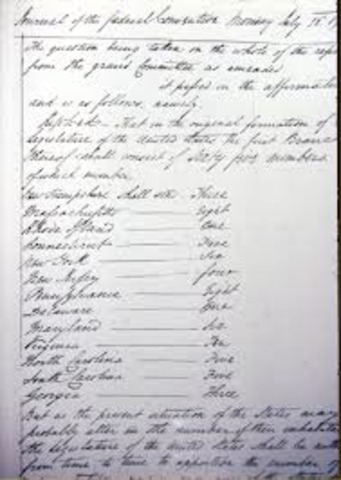 Journal of the federal Convention Monday July 16
The question being taken on the whole of the repo
from the grand Committee as amended
it passed in the affirmative
and is as follows, namely,
Resolved - That in the original formation of
Legislature of the United States the first Branch
thereof shall consist of Sixty five members
of which number
New Hampshire shall send Three
Massachusetts Eight
Rhode Island One
Connecticut Five
New York Six
New Jersey four
Pennsylvania Eight
Delaware One
Maryland Six
Virginia Ten
North Carolina Five
South Carolina Five
Georgia Three
But as the present situation of the States may
probably alter in the number of their inhabitants
the Legislature of the United States shall be
from time to time to apportion the number of